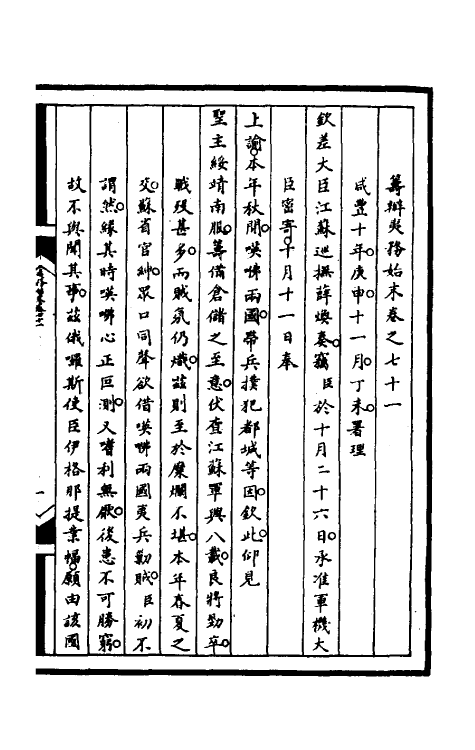 籌辦夷務始末卷之七十一
咸豐十年庚申十一月丁未署理
欽差大臣江蘇巡撫薛煥奏竊臣於十月二十六日承准軍機大
臣密寄十月十一日奉
上諭本年秋間嘆咈兩國帶兵撲犯都城等因欽此仰見
聖主綏靖南服籌備倉儲之至意伏查江蘇軍興八載良將勁卒
戰歿甚多而賊氛仍熾茲則至於糜爛不堪本年春夏之
交蘇省官紳眾口同聲欲借嘆咈兩國夷兵勦賊臣初不
謂然緣其時嘆咈心正叵測又嗜利無厭後患不可勝窮
故不與聞其事茲俄囉斯使臣伊格那提業幅願由該國